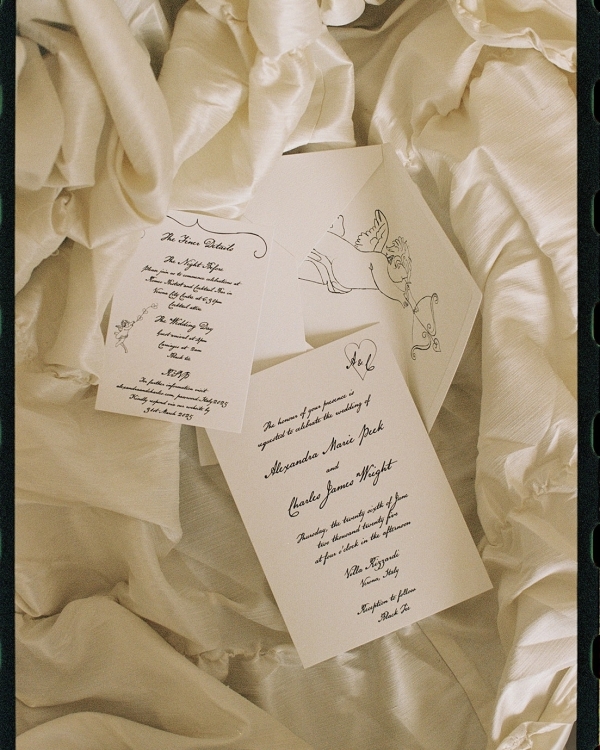 The Finer Details
The Night Before
Please join us to commence celebrations at
Verona City Centre at 6:30pm
Cocktail attire
The Wedding Day
Guest arrival at 4pm
Carriages at 2am
Black tie
RSVP
For further information visit
Kindly respond via our website by
31st March 2025
A & C
The honour of your presence is
requested to celebrate the wedding of
Alexandra Marie Peck
and
Charles James Wright
Thursday, the twenty sixth of June
two thousand twenty five
at four o'clock in the afternoon
Villa Rizzardi
Verona, Italy
Reception to follow
Black Tie